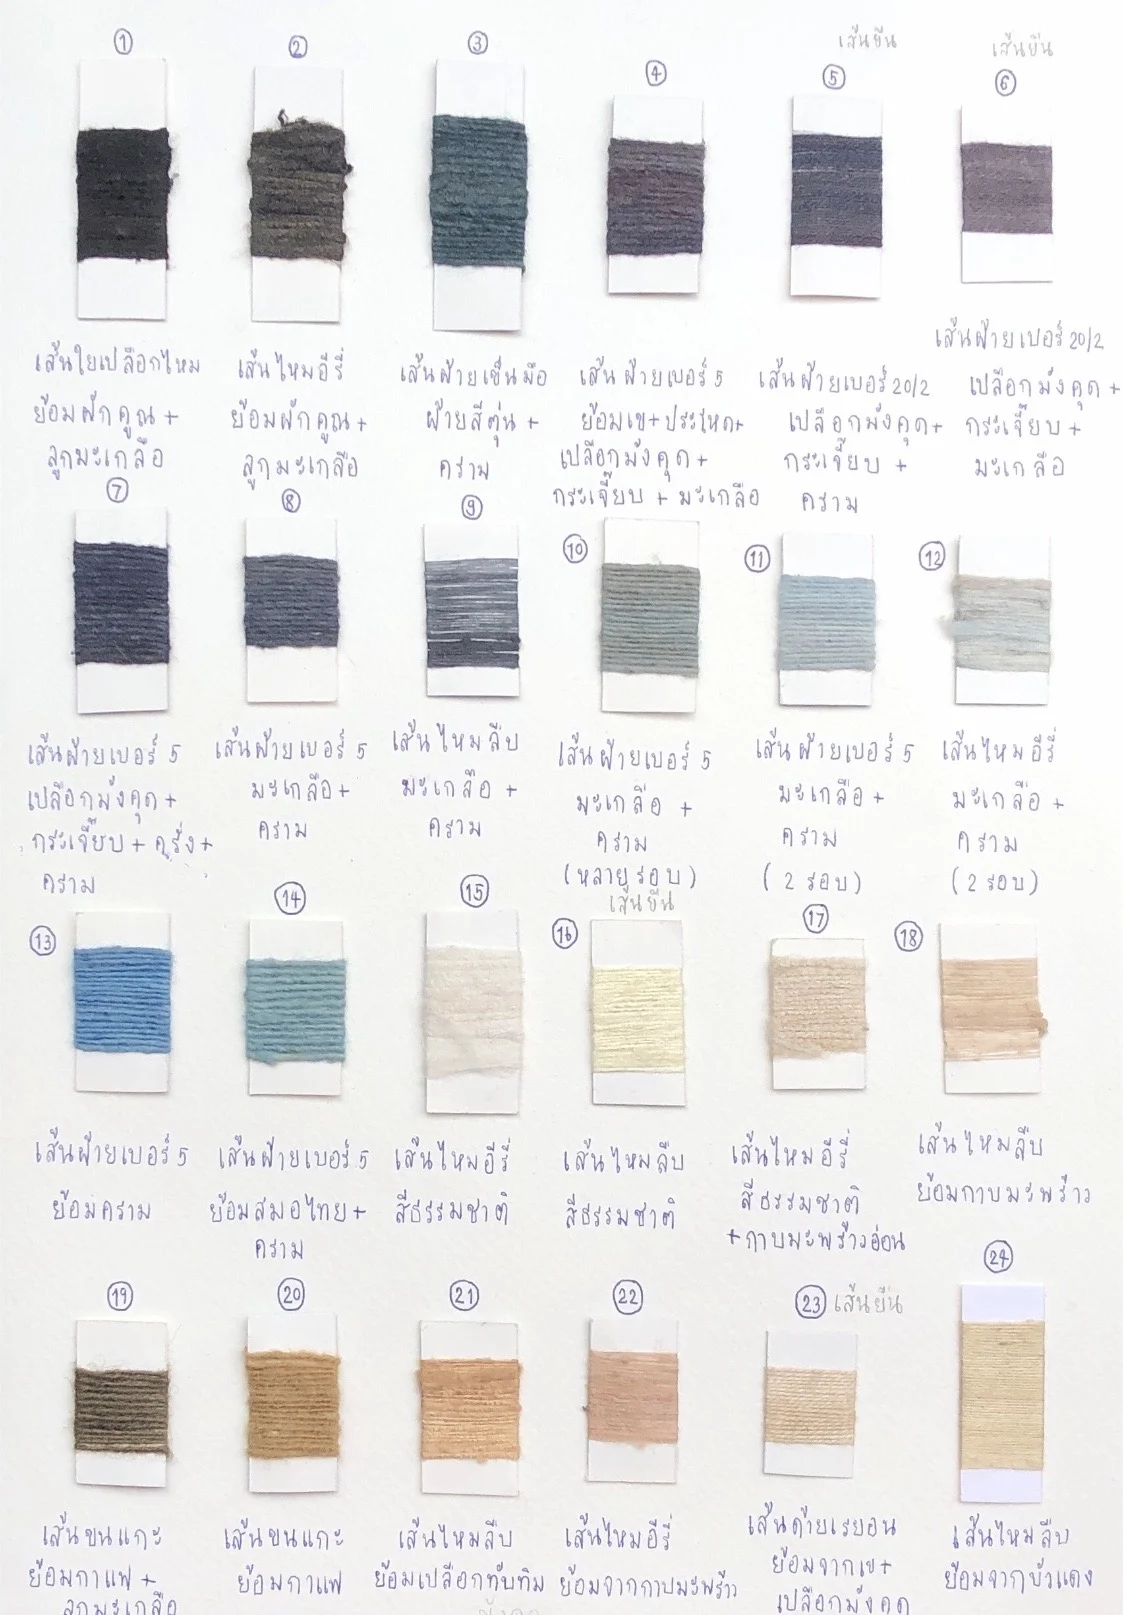 ①
เส้นใยเปลือกไหม
ย้อมฝักคูณ +
ลูกมะเกลือ
②
เส้นไหมอีรี่
ย้อมฝักคูณ +
ลูกมะเกลือ
③
เส้นฝ้ายเข็นมือ
ฝ้ายสีตุ่น +
คราม
④
เส้นฝ้ายเบอร์ 5
ย้อมเข+ประโหด+
เปลือกมังคุด+
กระเจี๊ยบ + มะเกลือ
เส้นยืน
⑤
เส้นฝ้ายเบอร์ 20/2
เปลือกมังคุด+
กระเจี๊ยบ +
คราม
เส้นยืน
⑥
เส้นฝ้ายเบอร์ 20/2
เปลือกมังคุด+
กระเจี๊ยบ +
มะเกลือ
⑦
เส้นฝ้ายเบอร์ 5
เปลือกมังคุด+
กระเจี๊ยบ + ครั่ง+
คราม
⑧
เส้นฝ้ายเบอร์ 5
มะเกลือ+
คราม
⑨
เส้นไหมลืบ
มะเกลือ +
คราม
⑩
เส้นฝ้ายเบอร์ 5
มะเกลือ +
คราม
(หลายรอบ)
⑪
เส้นฝ้ายเบอร์ 5
มะเกลือ +
คราม
(2 รอบ)
⑫
เส้นไหมอีรี่
มะเกลือ +
คราม
(2 รอบ)
⑬
เส้นฝ้ายเบอร์ 5
ย้อมคราม
⑭
เส้นฝ้ายเบอร์ 5
ย้อมสมอไทย+
คราม
⑮
เส้นไหมอีรี่
สีธรรมชาติ
เส้นยืน
⑯
เส้นไหมลืบ
สีธรรมชาติ
⑰
เส้นไหมอีรี่
สีธรรมชาติ
+กาบมะพร้าวอ่อน
⑱
เส้นไหมลืบ
ย้อมกาบมะพร้าว
⑲
เส้นขนแกะ
ย้อมกาแฟ +
ลูกมะเกลือ
⑳
เส้นขนแกะ
ย้อมกาแฟ
㉑
เส้นไหมลืบ
ย้อมเปลือกทับทิม
㉒
เส้นไหมอีรี่
ย้อมจากกาบมะพร้าว
㉓ เส้นยืน
เส้นด้ายเรยอน
ย้อมจากเข+
เปลือกมังคุด
㉔
เส้นไหมลืบ
ย้อมจากบัวแดง